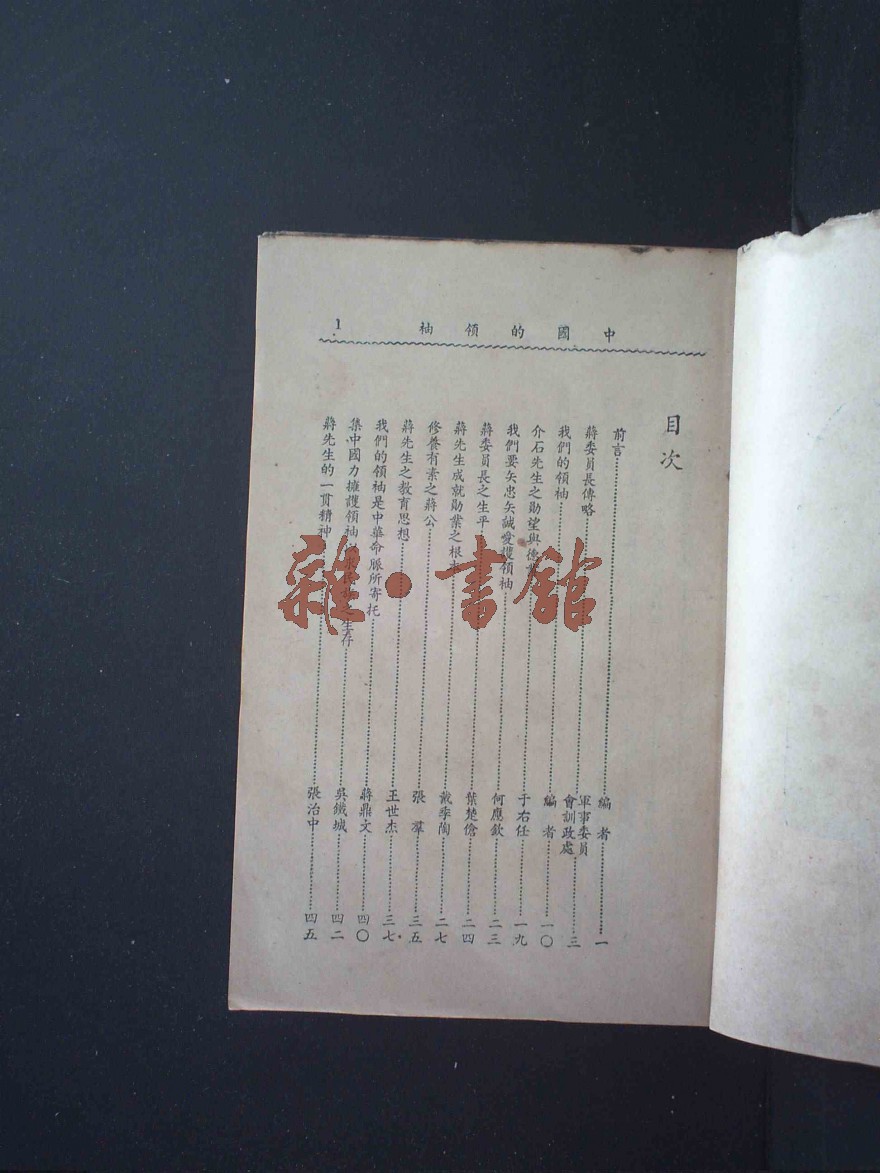 中國的領袖 1
目次
前言 編者 一
蔣委員長傳略 軍事委員會訓政處 三
我們的領袖 編者 一〇
介石先生之勛望與德 于右任 一九
我們要矢忠矢誠愛護領袖 何應欽 二三
蔣委員長之生平 葉楚傖 二四
蔣先生成就勛業之根 戴季陶 二七
修養有素之蔣公 張羣 三五
蔣先生之教育思想 王世杰 三七
我們的領袖是中華命脈所寄托 蔣鼎文 四〇
集中國力擁護領袖 生存 吳鐵城 四二
蔣先生的一貫精神 張治中 四五
雜·書館